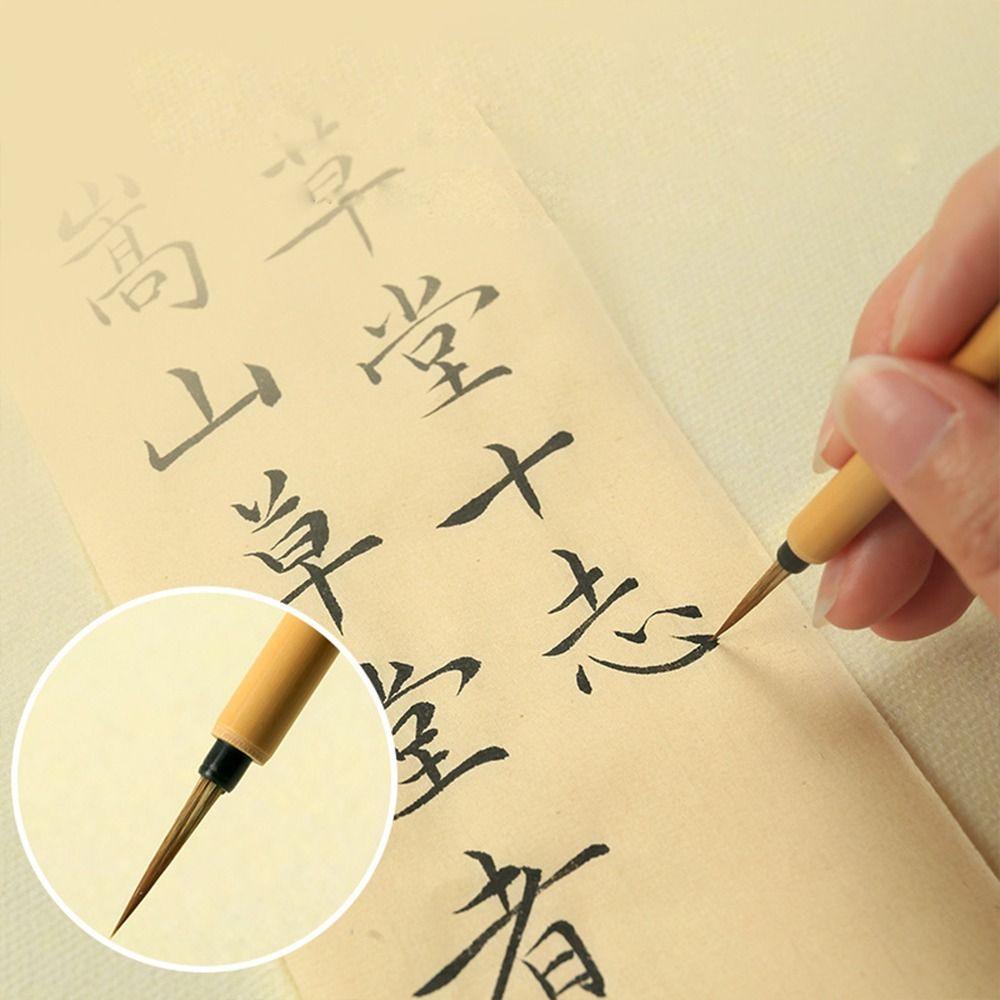 草堂十志
嵩山草堂者